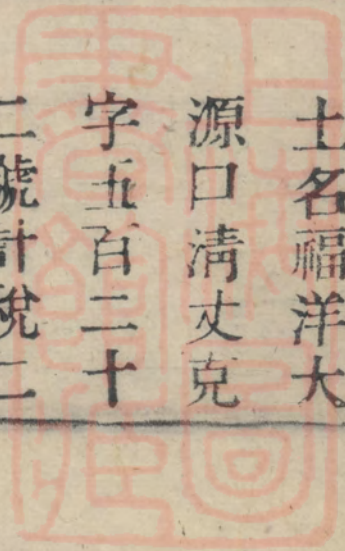 土名福洋大
源口淸丈克
字五百二十
二號計稅二